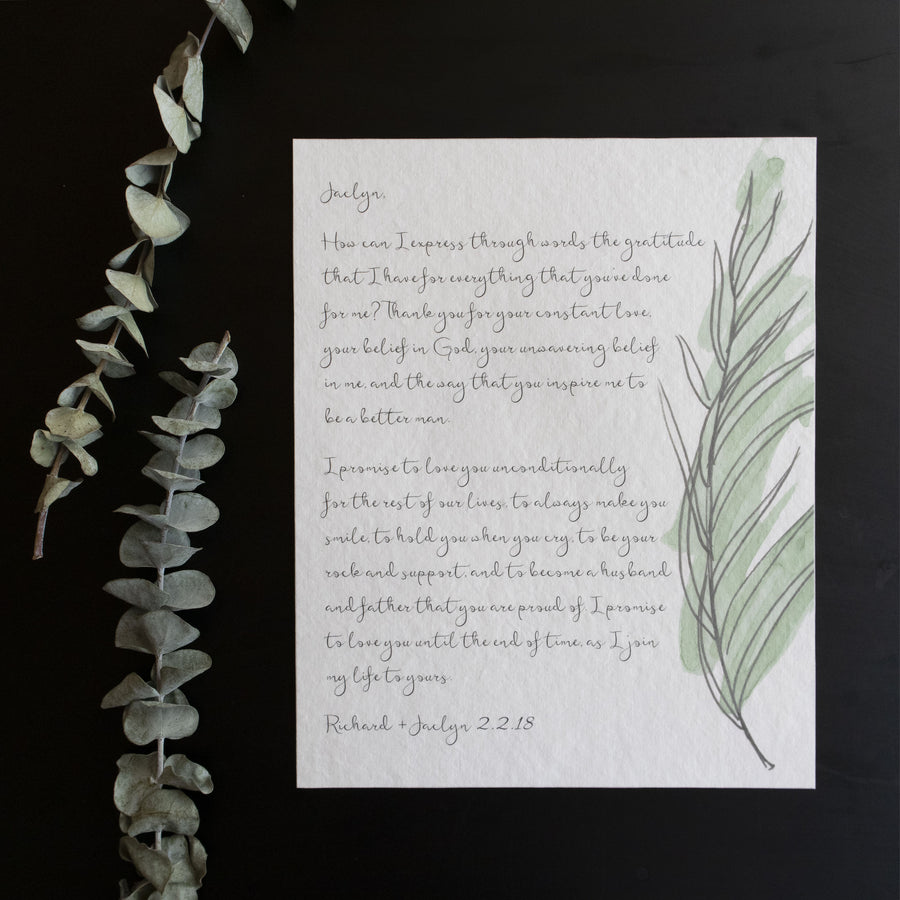 Jaclyn,
How can I express through words the gratitude
that I have for everything that you've done
for me? Thank you for your constant love,
your belief in God, your unwavering belief
in me, and the way that you inspire me to
be a better man.
I promise to love you unconditionally
for the rest of our lives, to always make you
smile, to hold you when you cry, to be your
rock and support, and to become a husband
and father that you are proud of. I promise
to love you until the end of time, as I join
my life to yours.
Richard + Jaclyn 2.2.18